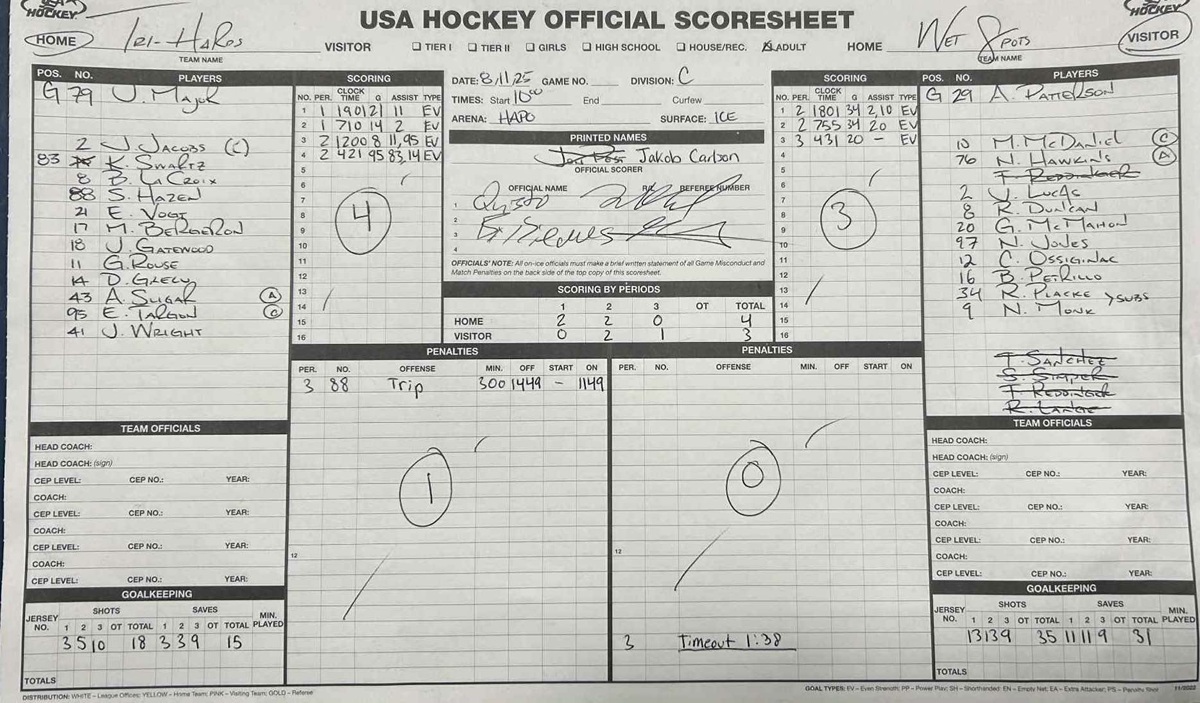 HOCKEY
USA HOCKEY OFFICIAL SCORESHEET
HOCKEY
HOME TRI-HARDS VISITOR ☐ TIER I ☐ TIER II ☐ GIRLS ☐ HIGH SCHOOL ☐ HOUSE/REC. ☒ ADULT HOME WET SPOTS VISITOR
TEAM NAME
TEAM NAME
POS. NO. PLAYERS
G 79 J. Major
2 J. JACOBS (C)
83 K. SWALTZ
8 B. LA CROIX
88 S. HAZEN
21 E. VOGT
17 M. BERGERON
18 J. GATEWOOD
11 G. ROUSE
14 D. GREEY
43 A. SUGAR A
95 E. TARGON C
41 J. WRIGHT
TEAM OFFICIALS
HEAD COACH:
HEAD COACH: (sign)
CEP LEVEL: CEP NO.: YEAR:
COACH:
CEP LEVEL: CEP NO.: YEAR:
COACH:
CEP LEVEL: CEP NO.: YEAR:
COACH:
CEP LEVEL: CEP NO.: YEAR:
GOALKEEPING
JERSEY NO. SHOTS SAVES MIN. PLAYED
1 2 3 OT TOTAL 1 2 3 OT TOTAL
3 5 10 18 3 3 9 15
TOTALS
SCORING
NO. PER. CLOCK TIME G ASSIST TYPE
1 1 1901 21 11 EV
2 1 710 14 2 EV
3 2 1200 8 11,95 EV
4 2 421 95 83,14 EV
5
6
7
8
9
10
11
12
13
14
15
16
4
DATE: 8/11/25 GAME NO. DIVISION: C
TIMES: Start 10:00 End Curfew
ARENA: HAPO SURFACE: ICE
PRINTED NAMES
Jakob Carlson
OFFICIAL SCORER
OFFICIAL NAME R/L REFEREE NUMBER
1
2
3
4
OFFICIALS' NOTE: All on-ice officials must make a brief written statement of all Game Misconduct and
Match Penalties on the back side of the top copy of this scoresheet.
SCORING BY PERIODS
1 2 3 OT TOTAL
HOME 2 2 0 4
VISITOR 0 2 1 3
SCORING
NO. PER. CLOCK TIME G ASSIST TYPE
1 2 1801 34 2,10 EV
2 2 755 34 20 EV
3 3 431 20 - EV
4
5
6
7
8
9
10
11
12
13
14
15
16
3
PENALTIES
PER. NO. OFFENSE MIN. OFF START ON
3 88 Trip 300 1449 - 1149
1
12
PENALTIES
PER. NO. OFFENSE MIN. OFF START ON
0
12
3 Timeout 1:38
POS. NO. PLAYERS
G 29 A. PATTERSON
10 M. McDANIEL C
76 N. HAWKINS A
T. REDDINGER
2 J. LUCAS
8 R. DUNCAN
20 G. McMAHON
97 N. JONES
12 C. OSSIGINAC
16 B. PETRILLO
34 R. PLACKE > SUBS
9 N. MONK
T. SANCHEZ
S. SIMPER
T. REDDINGER
R. LANGE
TEAM OFFICIALS
HEAD COACH:
HEAD COACH: (sign)
CEP LEVEL: CEP NO.: YEAR:
COACH:
CEP LEVEL: CEP NO.: YEAR:
COACH:
CEP LEVEL: CEP NO.: YEAR:
COACH:
CEP LEVEL: CEP NO.: YEAR:
GOALKEEPING
JERSEY NO. SHOTS SAVES MIN. PLAYED
1 2 3 OT TOTAL 1 2 3 OT TOTAL
13 13 9 35 11 11 9 31
TOTALS
DISTRIBUTION: WHITE – League Offices; YELLOW – Home Team; PINK – Visiting Team; GOLD – Referee
GOAL TYPES: EV – Even Strength; PP – Power Play; SH – Shorthanded; EN – Empty Net; EA – Extra Attacker; PS – Penalty Shot 11/2022